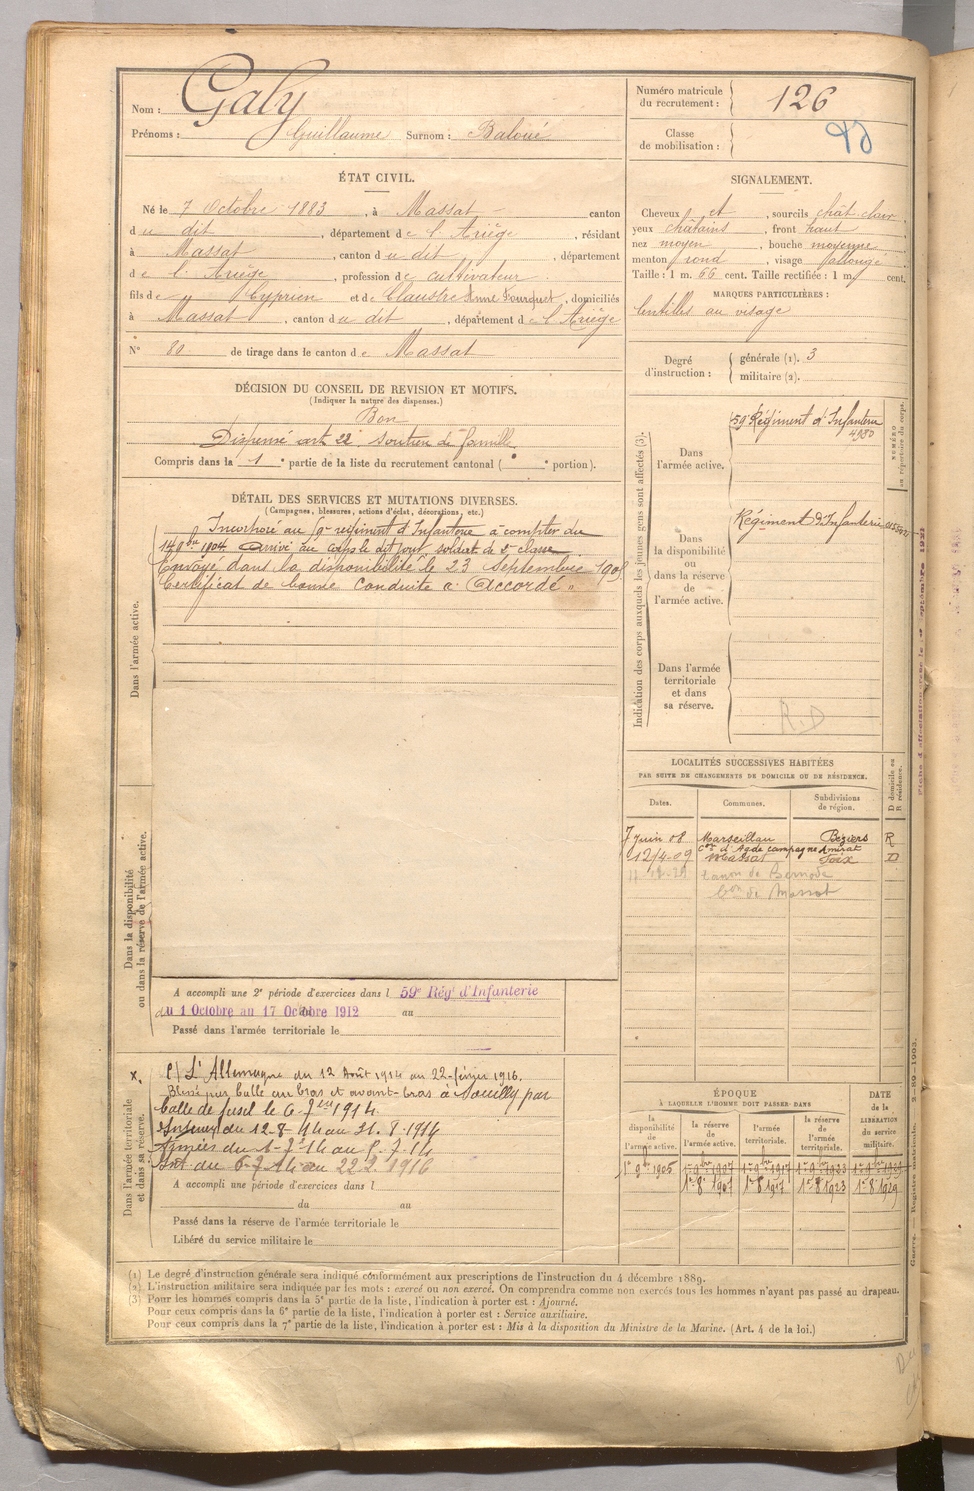 Nom : Galy
Prénoms : Guillaume Surnom : Baloué
Numéro matricule du recrutement : 126
Classe de mobilisation :
ÉTAT CIVIL.
Né le 7 Octobre 1883, à Massat canton
du dit, département de l'Ariège, résidant
à Massat, canton du dit, département
de l'Ariège, profession de cultivateur
fils de Cyprien et de Claustre Anne Fourquet, domiciliés
à Massat, canton du dit, département de l'Ariège
N° 80 de tirage dans le canton de Massat
SIGNALEMENT.
Cheveux et, sourcils chât-clair,
yeux châtains, front haut
nez moyen, bouche moyenne
menton rond, visage allongé
Taille : 1 m. 66 cent. Taille rectifiée : 1 m. cent.
MARQUES PARTICULIÈRES :
lentilles au visage
Degré d'instruction : générale (1). 3
militaire (2).
DÉCISION DU CONSEIL DE REVISION ET MOTIFS.
(Indiquer la nature des dispenses.)
Bon
Dispensé art 22 soutien de famille
Compris dans la 1 e partie de la liste du recrutement cantonal ( e portion).
DÉTAIL DES SERVICES ET MUTATIONS DIVERSES.
(Campagnes, blessures, actions d'éclat, décorations, etc.)
Dans l'armée active.
Incorporé au régiment d'Infanterie à compter du
1904 Arrivé au corps le dit jour, soldat de 2e classe
Envoyé dans la disponibilité le 23 Septembre
Certificat de bonne conduite a Accordé "
Dans la disponibilité ou dans la réserve de l'armée active.
A accompli une 2e période d'exercices dans l 59e Régt d'Infanterie
du 1 Octobre au 17 Octobre 1912 au
Passé dans l'armée territoriale le
Dans l'armée territoriale et dans sa réserve.
x. C/ L'Allemagne du 12 Août 1914 au 22 février 1916.
Blessé par balle au bras et avant-bras à Souilly par
balle de fusil le 6 1914.
Intérieur du 12-8-14 au 31.8.1914
Armées du
Int. du au 22 2 1916
A accompli une période d'exercices dans l
du au
Passé dans la réserve de l'armée territoriale le
Libéré du service militaire le
Indication des corps auxquels les jeunes gens sont affectés (3).
NUMÉRO au répertoire du corps.
Dans l'armée active.
59e Régiment d'Infanterie
4980
Dans la disponibilité ou dans la réserve de l'armée active.
Régiment d'Infanterie
Dans l'armée territoriale et dans sa réserve.
R.D
LOCALITÉS SUCCESSIVES HABITÉES
PAR SUITE DE CHANGEMENTS DE DOMICILE OU DE RÉSIDENCE.
Dates. Communes. Subdivisions de région. D domicile ou R résidence.
7 Juin 08 Marseillan Béziers R
d'Agde campagne Amirat
12/4-09 Massat Foix D
de Massat
ÉPOQUE
À LAQUELLE L'HOMME DOIT PASSER DANS
la disponibilité de l'armée active. la réserve de l'armée active. l'armée territoriale. la réserve de l'armée territoriale. DATE de la LIBÉRATION du service militaire.
1er 9bre 1905 1er 9bre 1907 1er 9bre 1917 1er 9bre 1923 1er 9bre 1929
1er 8 1907 1er 8 1917 1er 8 1923 1er 8 1929
(1) Le degré d'instruction générale sera indiqué conformément aux prescriptions de l'instruction du 4 décembre 1889.
(2) L'instruction militaire sera indiquée par les mots : exercé ou non exercé. On comprendra comme non exercés tous les hommes n'ayant pas passé au drapeau.
(3) Pour les hommes compris dans la 5e partie de la liste, l'indication à porter est : Ajourné.
Pour ceux compris dans la 6e partie de la liste, l'indication à porter est : Service auxiliaire.
Pour ceux compris dans la 7e partie de la liste, l'indication à porter est : Mis à la disposition du Ministre de la Marine. (Art. 4 de la loi.)